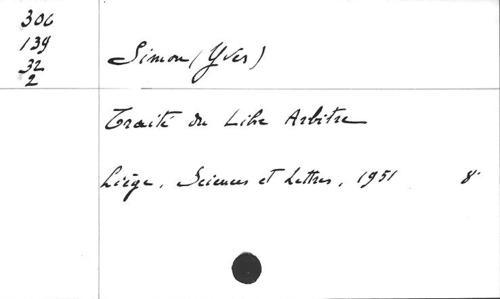 306
139
32
2
Simon (Yves)
Traité du Libre Arbitre
Liège, Sciences et Lettres, 1951 8°